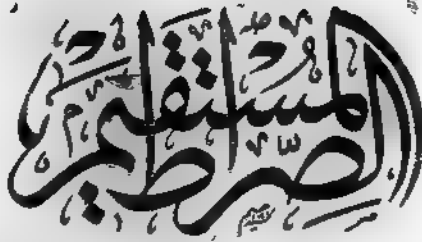 الصرط المستقيم